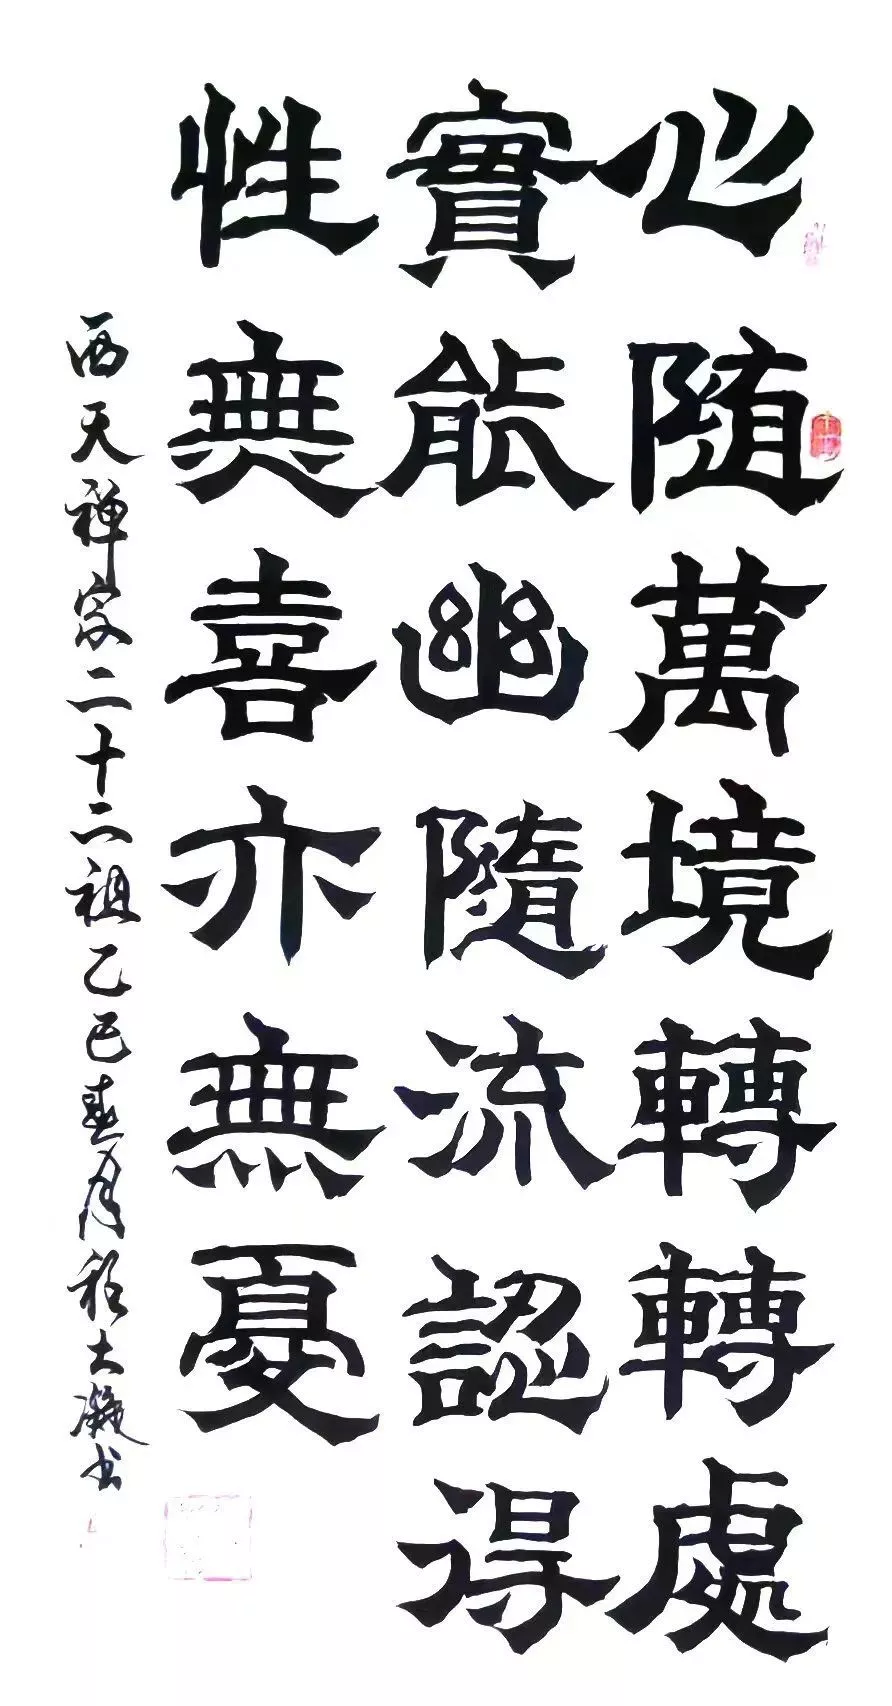 心随萬境轉轉處
實能幽隨流認得
性無喜亦無憂
西天禅二十二祖乙巳春月大凝书